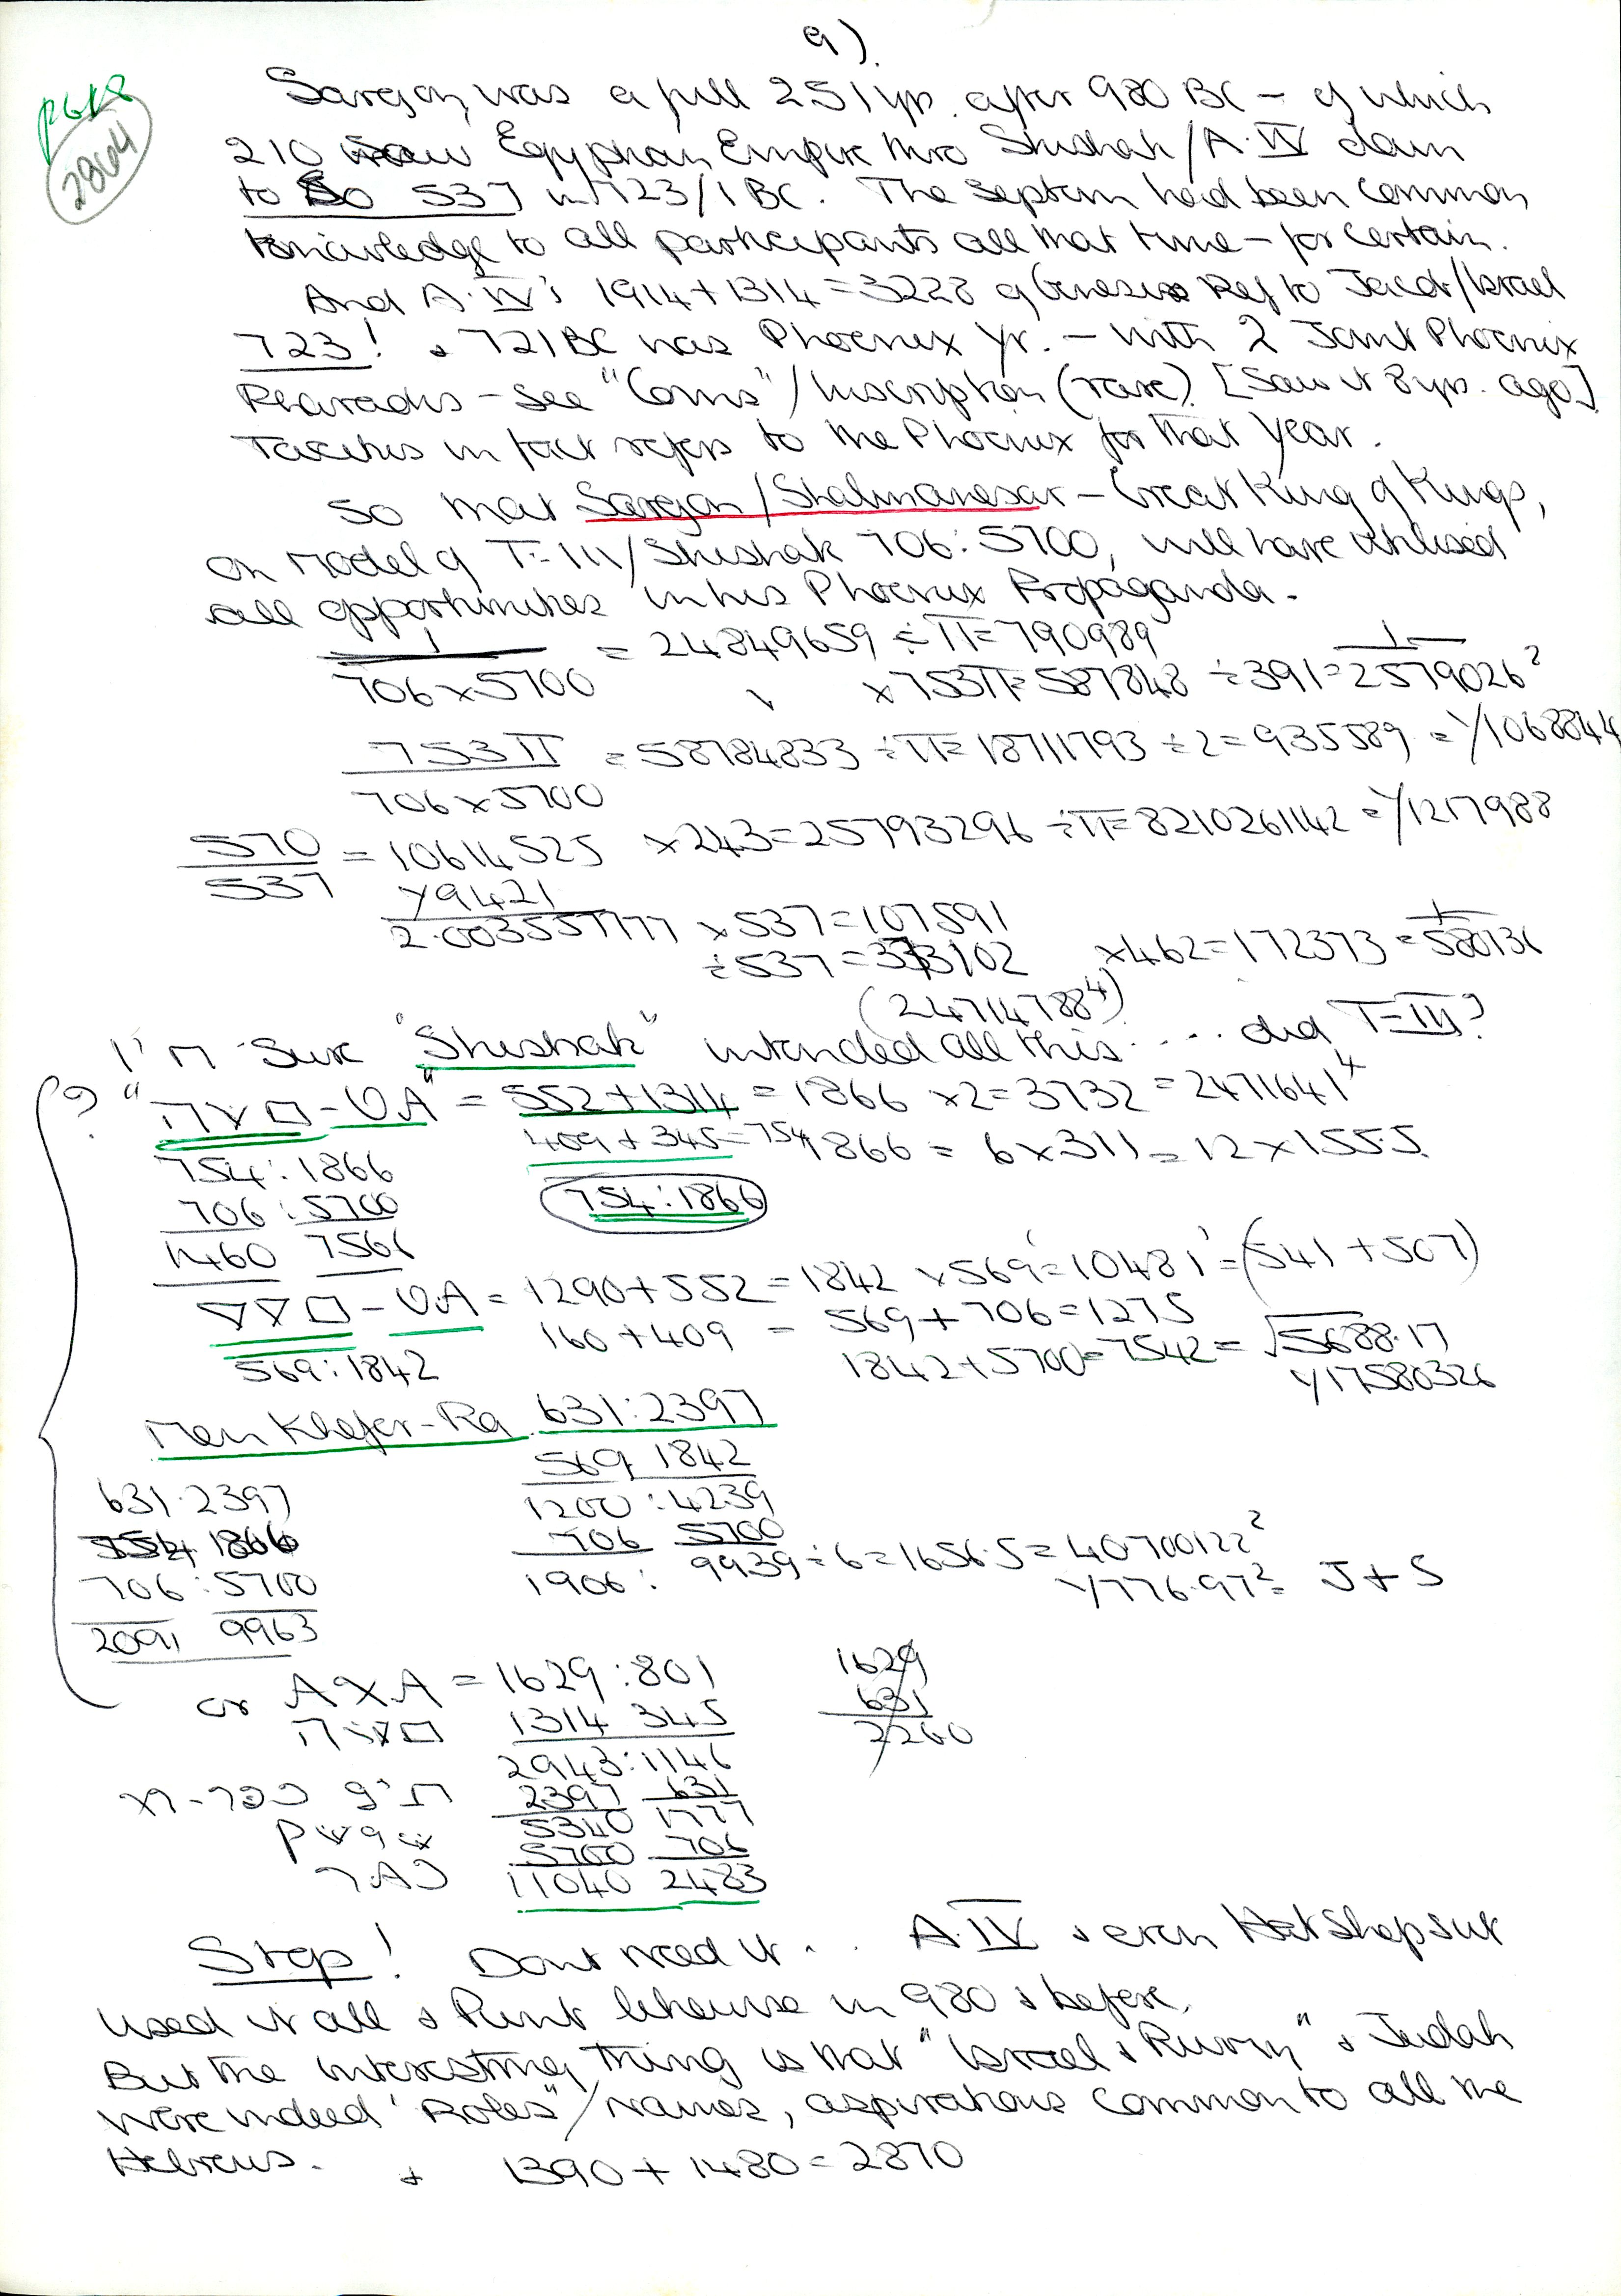 9).
P6K8
2864
Sargon, was a full 251 yrs. after 980 BC – of which
210 saw Egyptian Empire thro Shishak / A.IV down
to So 537 in 723/1 BC. The Septem had been common
knowledge to all participants all that time – for certain.
And A.IV's 1914 + 1314 = 3228 of Genesis Ref to Jacob/Israel
723! & 721 BC was Phoenix Yr. – with 2 Joint Phoenix
Pharaohs – see "Coins" / Inscription (rare). [Saw it 8 yrs. ago]
Tacitus in fact refers to the Phoenix for that year.
So that Sargon / Shalmanesar – Great King of Kings,
on model of T=III / Shishak 706:5700, will have utilised
all opportunities in his Phoenix Propaganda.
1/706 x 5700 = 24849659 ÷ π = 790989
x 753π = 587848 ÷ 391 = 1/2579026²
753π/706 x 5700 = 58784833 ÷ π = 18711793 ÷ 2 = 935589 = 1/1068844
570/537 = 10614525 x 243 = 25793296 ÷ π = 8210261142 = 1/1217988
1/9421
2.003557777 x 537 = 107591
÷ 537 = 373102 x 462 = 172373 = 1/580136
(24714788⁴)
I'm Sure "Shishak" intended all this .... did T=III?
? "ΠΥΠ - OA" = 552 + 1314 = 1866 x 2 = 3732 = 2471641⁴
409 + 345 = 754 1866 = 6 x 311 = 12 x 155.5
754:1866
706:5700
1460 7566
754:1866
- OA = 1290 + 552 = 1842 x 569 = 10481 = (541 + 507)
160 + 409 = 569 + 706 = 1275
569:1842
1842 + 5700 = 7542 = √5688.17
1/17580326
Men Kheper-Ra 631:2397
569 1842
1200:4239
706 5700
1906: 9939 ÷ 6 = 1656.5 = 40.700122²
1/776.97² = J + S
631.2397
754 1866
706:5700
2091 9963
or AXA = 1629:801
1314 345
2943:1146
2397 631
5340 1777
5700 706
11040 2483
1629
631
2260
Stop! Dont need it... A.IV & even Hatshepsut
used it all & Punt likewise in 980 & before.
But the interesting thing is that "Israel & " & Judah
were indeed "Roles" / Names, aspirations common to all the
Hebrews. & 1390 + 1480 = 2870